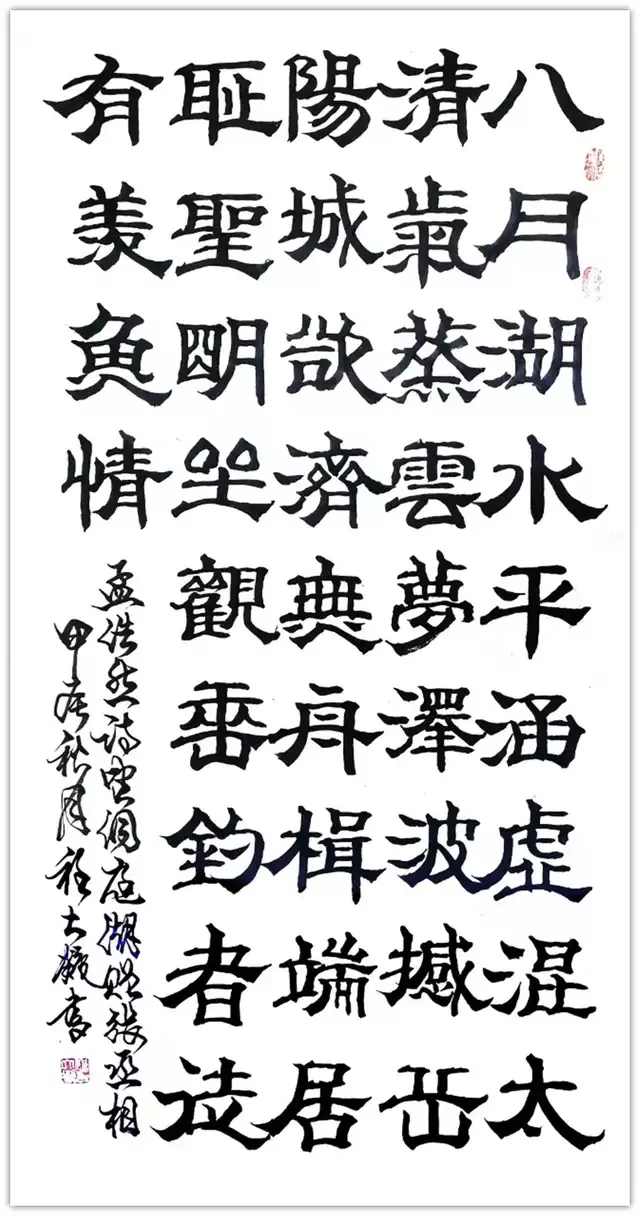 八月湖水平涵虛混太
清氣蒸雲夢澤波撼岳
陽城欲濟無舟楫端居
耻聖明坐觀垂釣者徒
有羨魚情
孟浩然詩望洞庭湖贈張丞相
甲辰秋月程大書